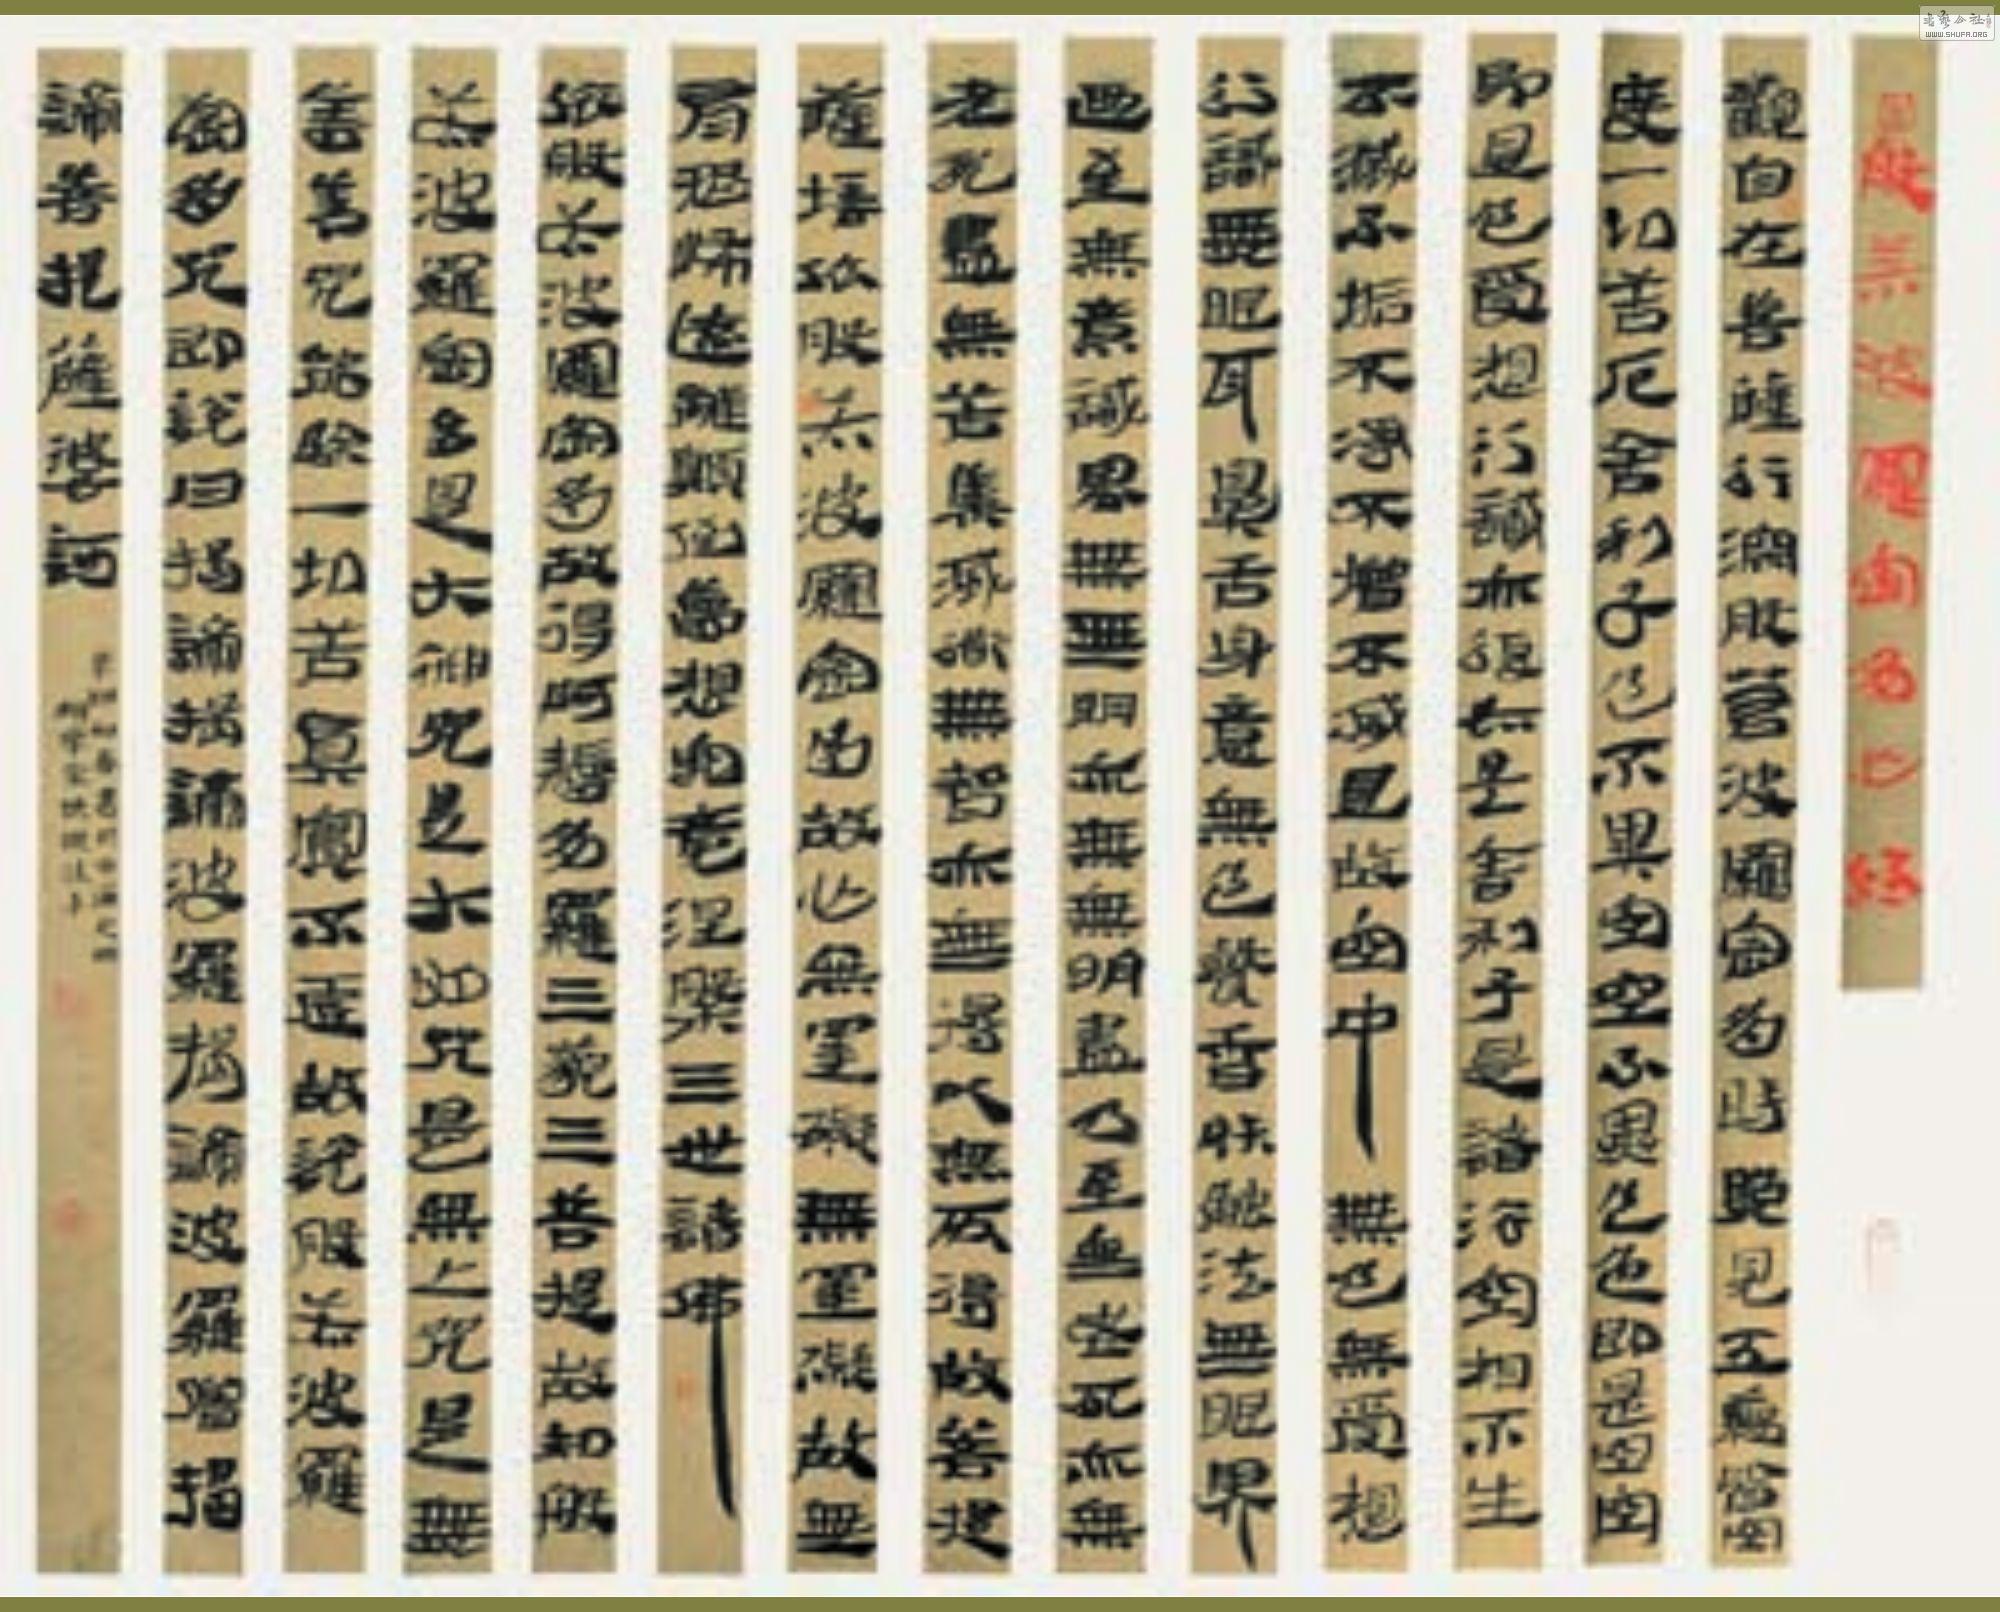 般若波羅蜜多心經
觀自在菩薩行深般若波羅蜜多時照見五蘊皆空
度一切苦厄舍利子色不異空空不異色色即是空空
即是色受想行識亦復如是舍利子是諸法空相不生
不滅不垢不淨不增不減是故空中無色無受想
行識無眼耳鼻舌身意無色聲香味觸法無眼界
乃至無意識界無無明亦無無明盡乃至無老死亦無
老死盡無苦集滅道無智亦無得以無所得故菩提
薩埵依般若波羅蜜多故心無罣礙無罣礙故無
有恐怖遠離顛倒夢想究竟涅槃三世諸佛
依般若波羅蜜多故得阿耨多羅三藐三菩提故知般
若波羅蜜多是大神咒是大明咒是無上咒是無
等等咒能除一切苦真實不虛故說般若波羅
蜜多咒即說曰揭諦揭諦波羅揭諦波羅僧揭
諦菩提薩婆訶
WWW.SHUFA.ORG